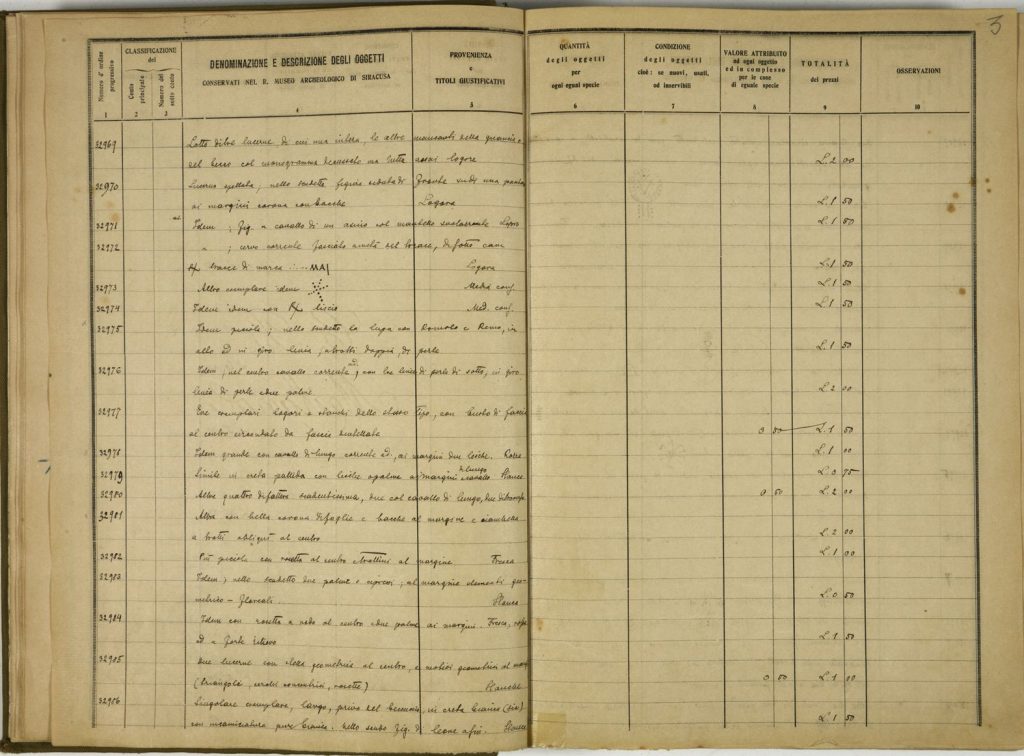 3
Numero d'ordine progressivo
CLASSIFICAZIONE
del
Conto principale
Numero del sotto conto
DENOMINAZIONE E DESCRIZIONE DEGLI OGGETTI
CONSERVATI NEL R. MUSEO ARCHEOLOGICO DI SIRACUSA
PROVENIENZA
e
TITOLI GIUSTIFICATIVI
QUANTITÀ
degli oggetti
per
ogni egual specie
CONDIZIONE
degli oggetti
cioè: se nuovi, usati,
od inservibili
VALORE ATTRIBUITO
ad ogni oggetto
ed in complesso
per le cose
di eguale specie
TOTALITÀ
dei prezzi
OSSERVAZIONI
1 2 3 4 5 6 7 8 9 10
32969 Lotto di tre lucerne di cui una intera, le altre mancanti della
del becco col monogramma ma tutte assai logore L. 2 00
32970 Lucerna; nello scudetto figura seduta di fronte
ai margini corona con bacche Logora L. 1 50
32971 Idem; fig. a cavallo di un asino col mantello svolazzante L. 1 50
32972 " ; cervo corrente di sotto cane
tracce di marca MAI Logora L. 1 50
32973 Altro esemplare idem Media cons. L. 1 50
32974 Idem idem con liscio Med. cons. L. 1 50
32975 Idem piccola; nello scudetto la lupa con Romolo e Remo, in
alto ed in giro linea, di perle L. 1 50
32976 Idem; nel centro cavallo corrente ad., con tre linee di perle di sotto, in giro
linea di perle e due palme. L. 2 00
32977 Tre esemplari logori e stanchi dello stesso tipo, con busto di
al centro circondato da fascia L. 1 50
32978 Idem grande con cavallo di lungo corrente ad., ai margini due L. 1 00
32979 Simile in creta pallida con ai margini cavallo di lungo Stanca L. 0 75
32980 Altre quattro di fattura scadentissima, due col cavallo di lungo, due 0 50 L. 2 00
32981 Altra con bella corona di foglie e bacche al margine e
a tratti obliqui al centro L. 2 00
32982 Più piccola con rosetta al centro e trattini al margine Fresca L. 1 00
32983 Idem; nello scudetto due palme e cipressi; al margine elementi geo-
metrico - floreali Stanca L. 0 50
32984 Idem con rosetta a nodo al centro e due palme ai margini. Fresca,
ed a forte rilievo L. 1 50
32985 Due lucerne con stella geometrica al centro, e motivi geometrici al
(triangoli, cerchi concentrici, rosette) Stanche L. 1 00
32986 Singolare esemplare, largo, privo del beccuccio, in creta bianca (sic)
con incamiciatura pure bianca. Nello scudo fig. di leone Stanca L. 1 50